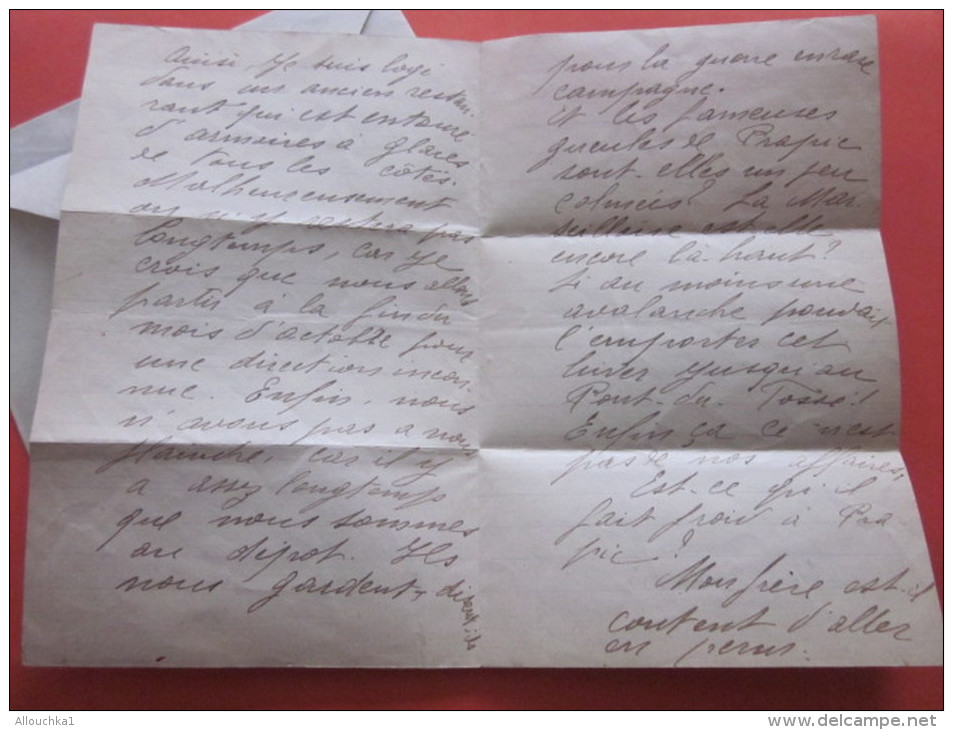 Ainsi, je suis logé
dans un ancien restau-
rant qui est entouré
d'armoires à glaces
de tous les côtés.
Malheureusement
on n'y restera pas
longtemps, car je
crois que nous allons
partir à la fin du
mois d'octobre pour
une direction incon-
nue. Enfin, nous
n'avons pas à nous
plaindre, car il y
a assez longtemps
que nous sommes
au dépot. Ils
nous gardent, disent-ils
pour la guerre en rase
campagne.
Et les fameuses
gueules de Prapic
sont-elles un peu
calmées? La Mar-
seillaise est-elle
encore là-haut?
Si au moins une
avalanche pouvait
l'emporter cet
hiver jusqu'au
Pont-du-Fossé!
Enfin ça ce n'est
pas de nos affaires,
Est-ce qu'il
fait froid à Pra-
pic?
Mon frère est-il
content d'aller
en perm.
Allouchka1
www.delcampe.net